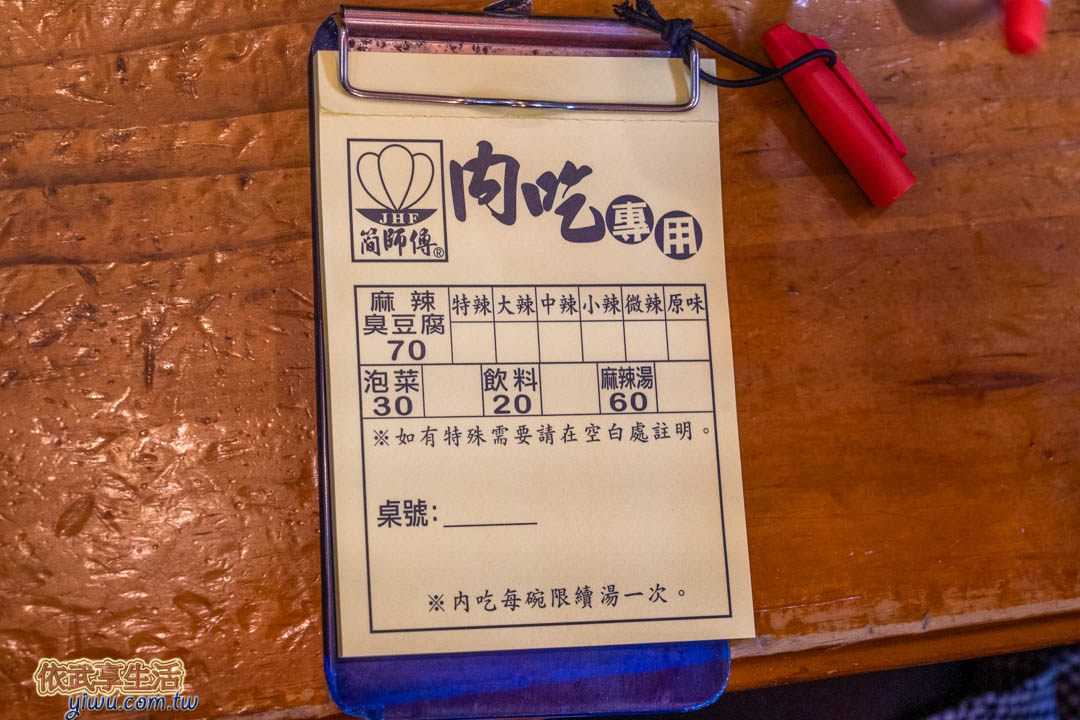 JHF
簡師傅®
內吃專用
麻辣 特辣 大辣 中辣 小辣 微辣 原味
臭豆腐
70
泡菜 飲料 麻辣湯
30 20 60
※如有特殊需要請在空白處註明。
桌號:
※內吃每碗限續湯一次。
依武享生活
yiwu.com.tw